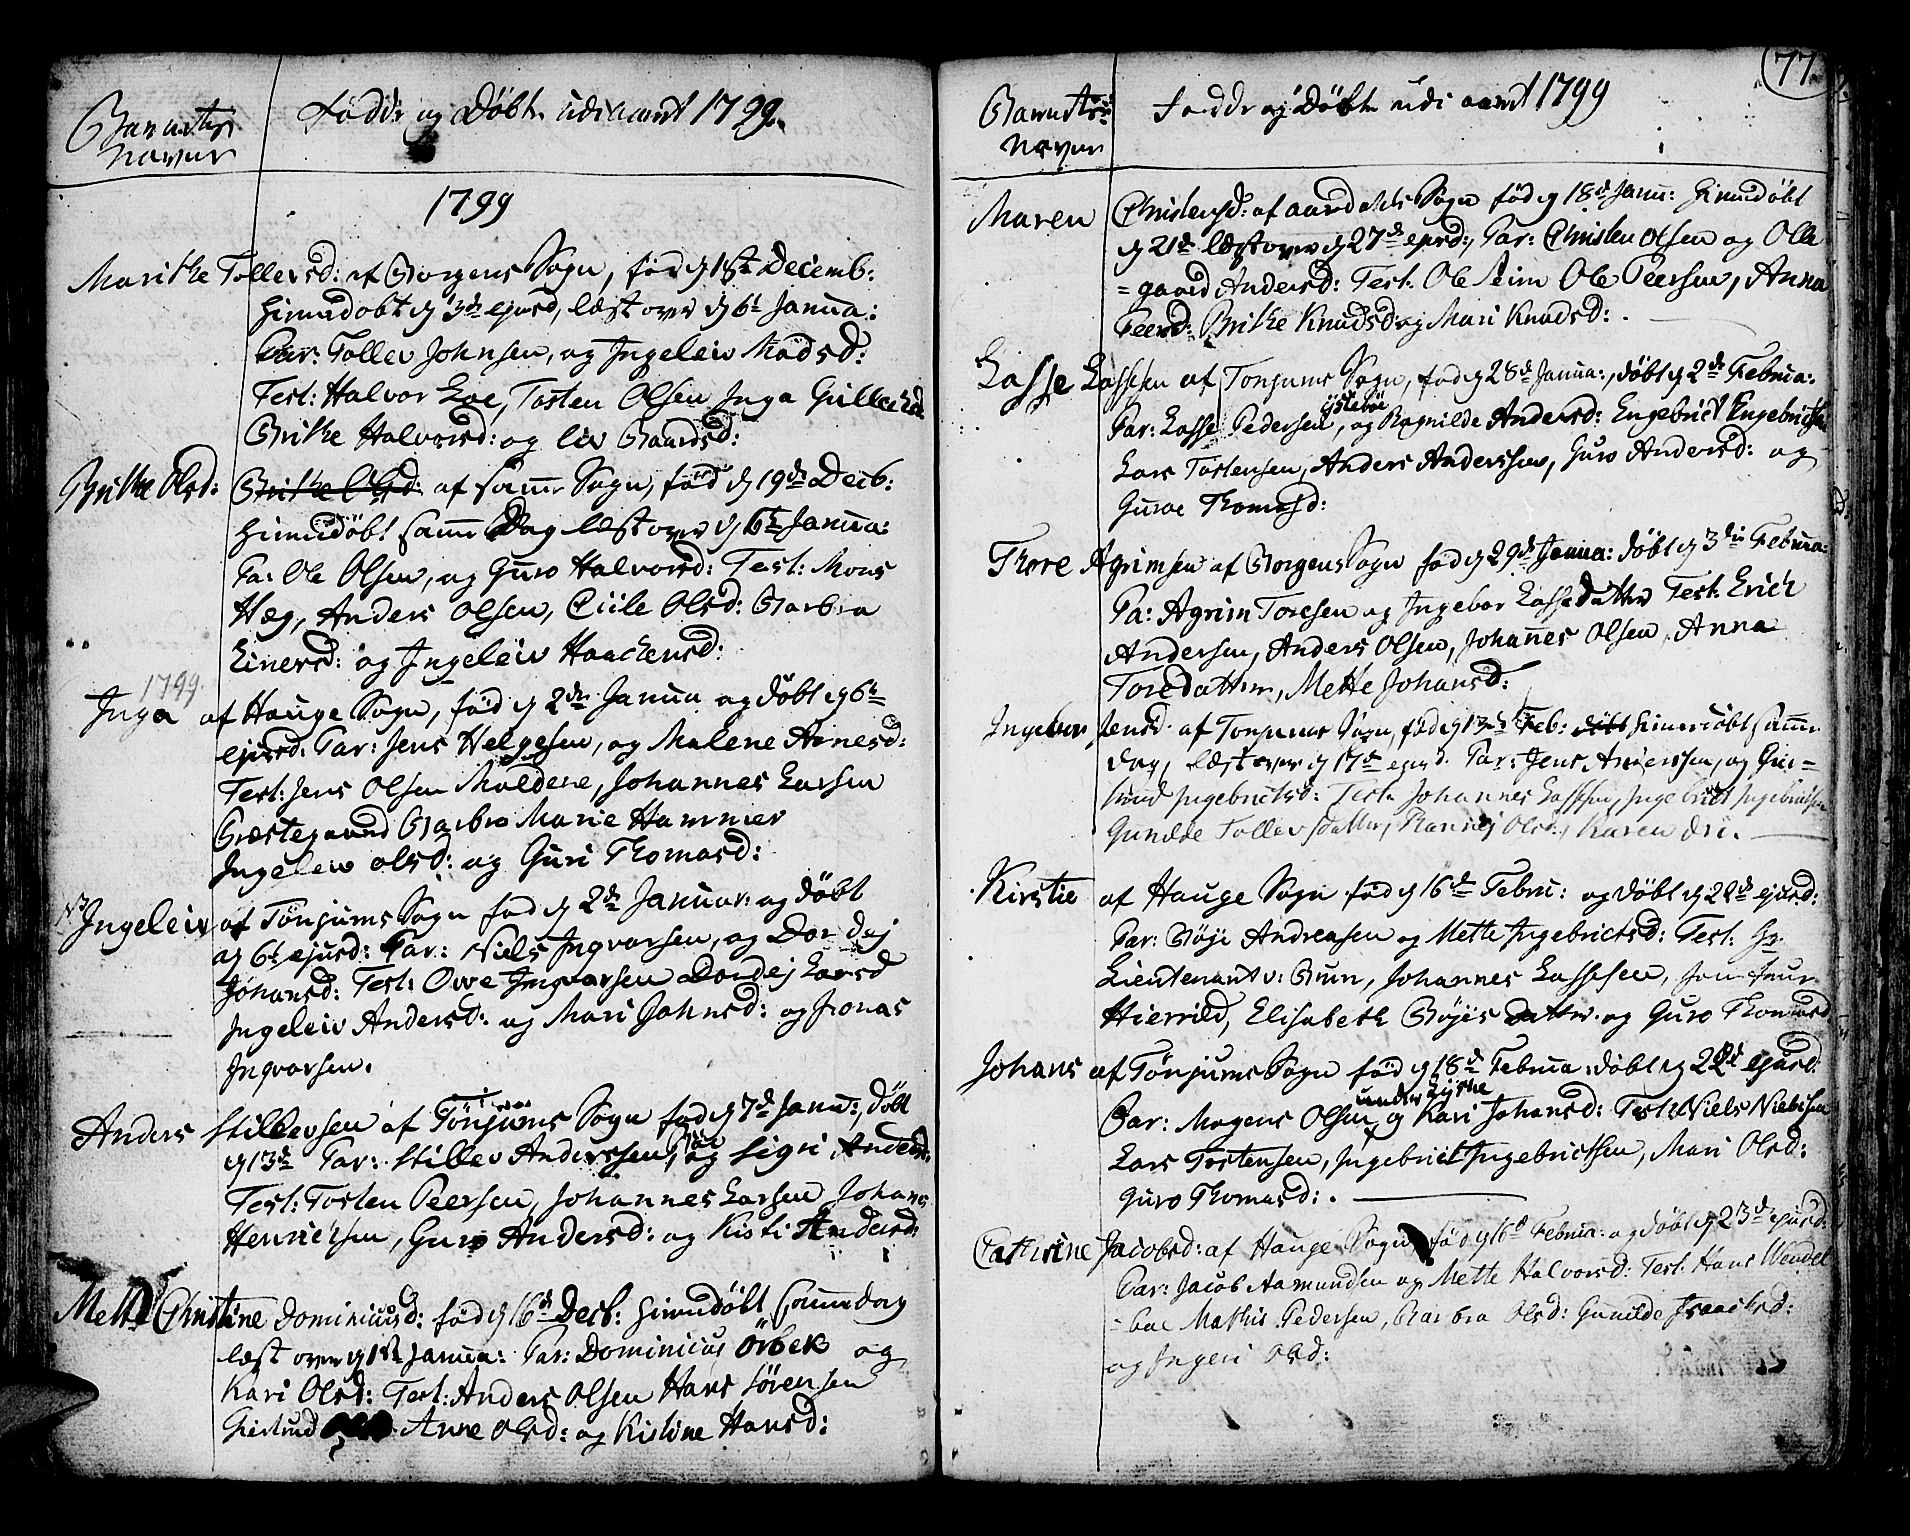 Barnetz
Navne
Fødde og Døbte udi aaret 1799.
1799
Marithe Tollevsd: af Borgens Sogn, fød d 1ste Decemb:
hiemdøbt d 3de ejusd, læst over d 6t Janua:
Par: Tollev Johnsen, og Ingeleiv Madsd:
Test: Halvor Loe, Tosten Olsen Inga
Brithe Halvorsd: og Liv Baardsd:
Brithe Olsd: Brithe Olsd: af samme Sogn, fød d 19de Decb:
hiemdøbt samme Dag læst over d 6te Janua:
Pa: Ole Olsen, og Guro Halvorsd: Test: Mons
Hæg, Anders Olsen, Ciile Olsd: Barbra
Einersd: og Ingeleiv Haachensd:
1799.
Inga af Hauge Sogn, fød d 2den Janua og døbt d 6te
ejusd: Par: Jens Helgesen, og Malene Arnesd:
Test: Jens Olsen Moldene, Johannes Larsen
Præstegaard Barbro Marie Hammer
Ingeleiv Olsd: og Guri Thomasd:
Ingeleiv af Tønjums Sogn fød d 2de Januar: og døbt
d 6t ejusd: Par: Niels Ingvarsen, og Dordej
Johansd: Test: Owe Ingvarsen Dordej Larsd
Ingeleiv Andersd: og Mari Johnsd: og Jonas
Ingvarsen.
Anders Stillevsen af Tønjums Sogn fød d 7de Janu:, døbt
d 13de Par: Stillev Anderssen, og Sigri Andersd:
Test: Tosten Peersen, Johannes Larsen Johans
Henrichsen, Guro Andersd: og Kisti Andersd:
Mette Christine Dominicusd: fød d 16de Decb: hiemdøbt samme dag
læst over d 1ste Janua: Par: Dominicus Örbek og
Kari Olsd: Test: Anders Olsen Hans Sörensen
Giertrud Anne Olsd: og Kistine Hansd:
77
Barnetz
Navne
Fødde og Døbte udi aaret 1799
Maren Christensd: af Aardals Sogn fød d 18de Janu: hiemdøbt
d 21de læst over d 27de ejusd:, Par: Christen Olsen og Olle
=gaard Andersd: Test: Ole Seim Ole Peersen, Anna
Peersd: Brithe Knudsd og Mari Knudsd:
Lasse Lassesen af Tonjums Sogn, fød d 28de Janua:, døbt d 2de Februa:
ÿstebøe
Par: Lasse Pedersen, og Ragnilde Andersd: Engebrict Engebrictsen
Lars Tostensen, Anders Anderssen, Guro Andersd: og
Guroe Thomasd:
Thore Agrimsen af Borgens Sogn fød d 29de Janua: døbt d 3die Februa:
Pa: Agrim Toresen og Ingebor Lassedatter Test: Erich
Andersen, Anders Olsen, Johannes Olsen, Anna
Toredatter, Mette Johansd:
Ingebor Jensd: af Tonjums Sogn, fød d 13de Feb: døbt hiemdøbt samme
dag, læst over d 17de ejusd. Par: Jens Anderssen, og Gu-
Ingebrictsd: Test: Johannes Lassesen, Ingebrict Ingebrictsen
Gunilde Tollevsdatter, Rannej Olsd:, Karen
Kirstie af Hauge Sogn fød d 16de Febru: og døbt d 22de ejusd:
Par: Bøje Andreasen og Mette Ingebrictsd: Test: Hr
Lieutenant v: Brun, Johannes Lassesen,
Hierrild, Elisabeth Bøjes datter og Guro Thomasd
Johans af Tönjums Sogn fød d 18de Februa: døbt d 22de ejusd:
under Lysne
Par: Mogens Olsen, og Kari Johansd: Test: Niels Nielssen
Lars Tostensen, Ingebrict Ingebrictsen, Mari Olsd:
Guro Thomasd:
Cathrine Jacobsd: af Hauge Sogn, fød d 16de Februa: og døbt d 23de ejusd:
Par: Jacob Aamundsen og Mette Halvorsd: Test: Hans Wendel
-boe Mathis Pedersen, Barbra Olsd: Gunilde Isaachsd:
og Ingeri Olsd: